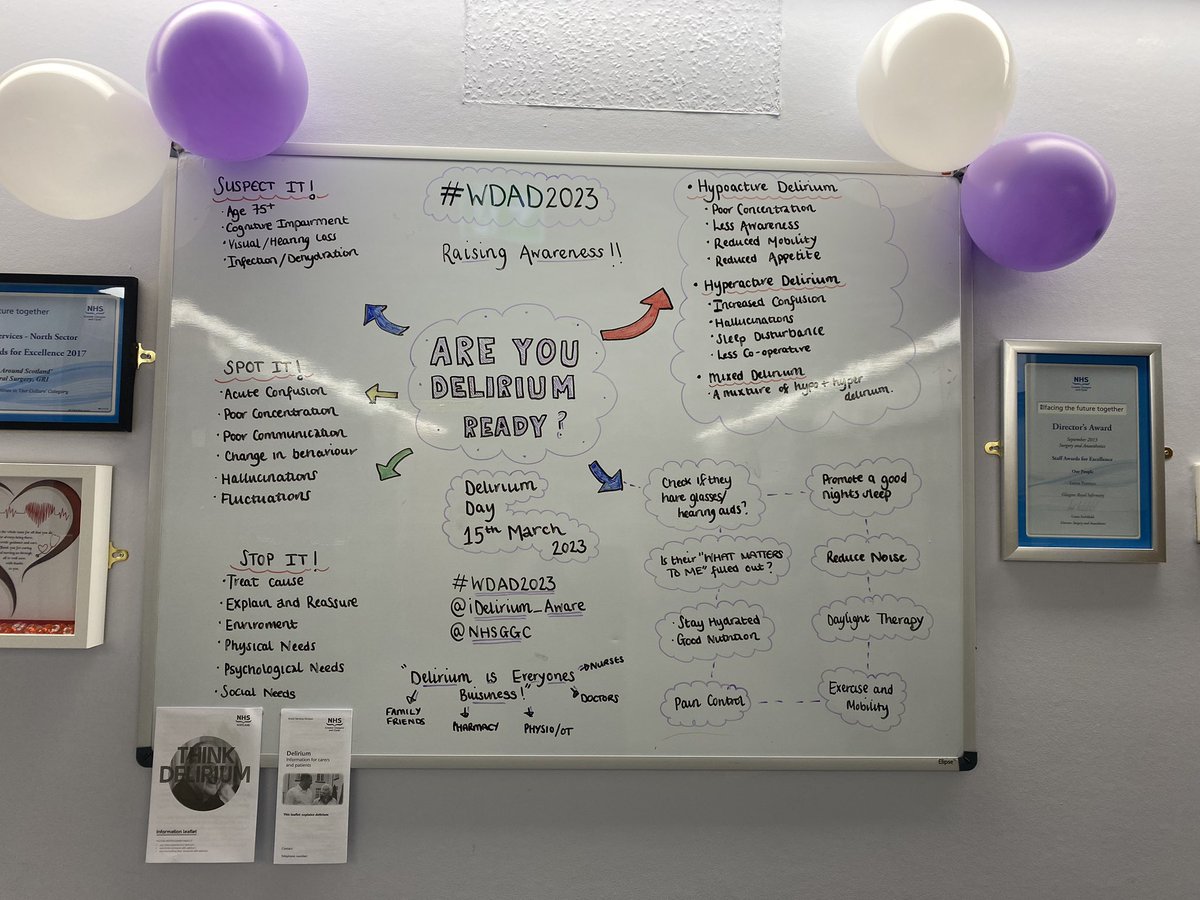 SUSPECT IT!
· Age 75+
· Cognitive Impairment
· Visual/Hearing Loss
· Infection/Dehydration
SPOT IT!
· Acute Confusion
· Poor Concentration
· Poor Communication
· Change in behaviour
· Hallucinations
· Fluctuations
STOP IT!
· Treat cause
· Explain and Reassure
· Enviroment
· Physical Needs
· Psychological Needs
· Social Needs
#WDAD2023
Raising Awareness!!
ARE YOU
DELIRIUM
READY?
Delirium
Day
15th March
2023
#WDAD2023
@iDelirium_Aware
@NHSGGC
"Delirium is Everyones
Buisness!"
NURSES
DOCTORS
FAMILY
FRIENDS
PHARMACY
PHYSIO/OT
• Hypoactive Delirium
· Poor Concentration
· Less Awareness
· Reduced Mobility
· Reduced Appetite
• Hyperactive Delirium
· Increased Confusion
· Hallucinations
· Sleep Disturbance
· Less Co-operative
• Mixed Delirium
· A mixture of hypo + hyper
delirium.
Check if they
have glasses/
hearing aids?
Is their "WHAT MATTERS
TO ME" filled out?
· Stay Hydrated
· Good Nutrition
Pain Control
Promote a good
nights sleep
Reduce Noise
Daylight Therapy
Exercise and
Mobility
Elipse
future together
NHS
ervices - North Sector
ds for Excellence 2017
Around Scotland'
ral Surgery, GRI
NHS
facing the future together
Director's Award
September 2015
Surgery and Anaesthetics
Staff Awards for Excellence
Our People
Glasgow Royal Infirmary
NHS
SCOTLAND
THINK
DELIRIUM
Information leaflet
NHS
Delirium
Information for carers
and patients
This leaflet explains delirium
Contact:
Telephone number: